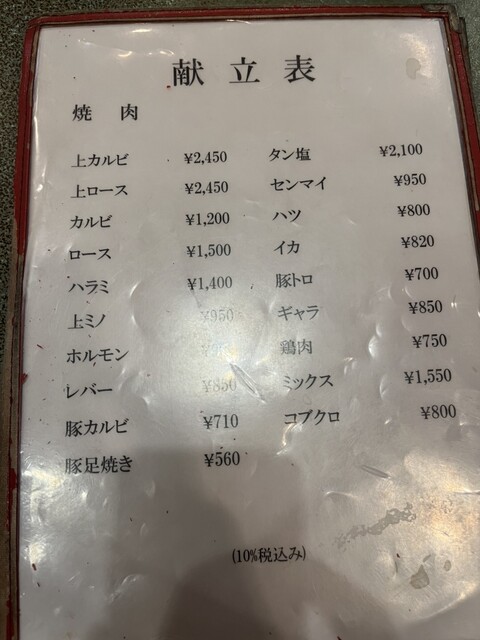 献立表
焼肉
上カルビ ¥2,450
上ロース ¥2,450
カルビ ¥1,200
ロース ¥1,500
ハラミ ¥1,400
上ミノ ¥950
ホルモン
レバー ¥850
豚カルビ ¥710
豚足焼き ¥560
タン塩 ¥2,100
センマイ ¥950
ハツ ¥800
イカ ¥820
豚トロ ¥700
ギャラ ¥850
鶏肉 ¥750
ミックス ¥1,550
コブクロ ¥800
(10%税込み)